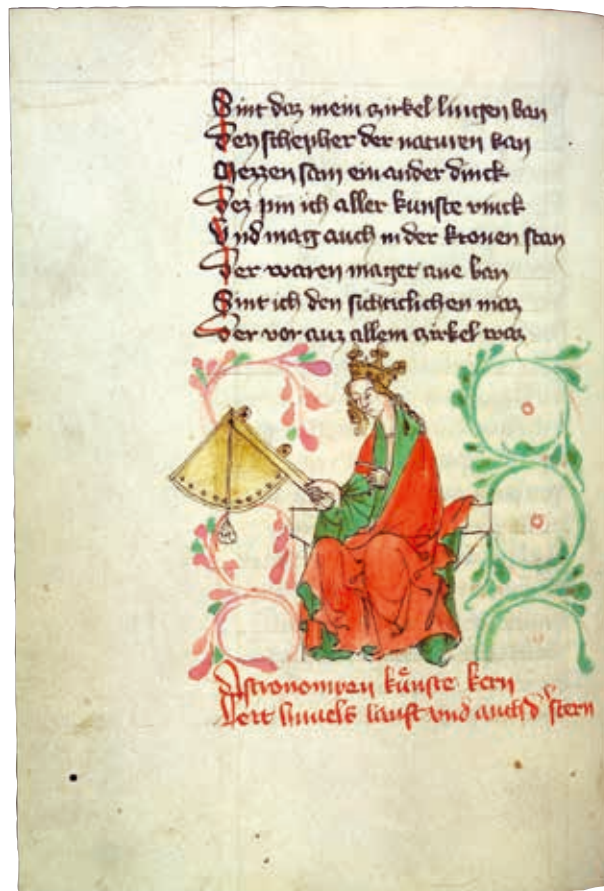 Sint daz mein zirkel lingen han
Den schepher der naturen kan
Mezzen sam ein ander dinck
Dez pin ich aller kunste vinck
Vnd mag auch in der kronen stan
Der waren maget ane ban
Sint ich den sichticlichen maz
Der vor auz allem zirkel waz
Astronomyen kůnste kern
Lert himels lauft vnd auch d' stern